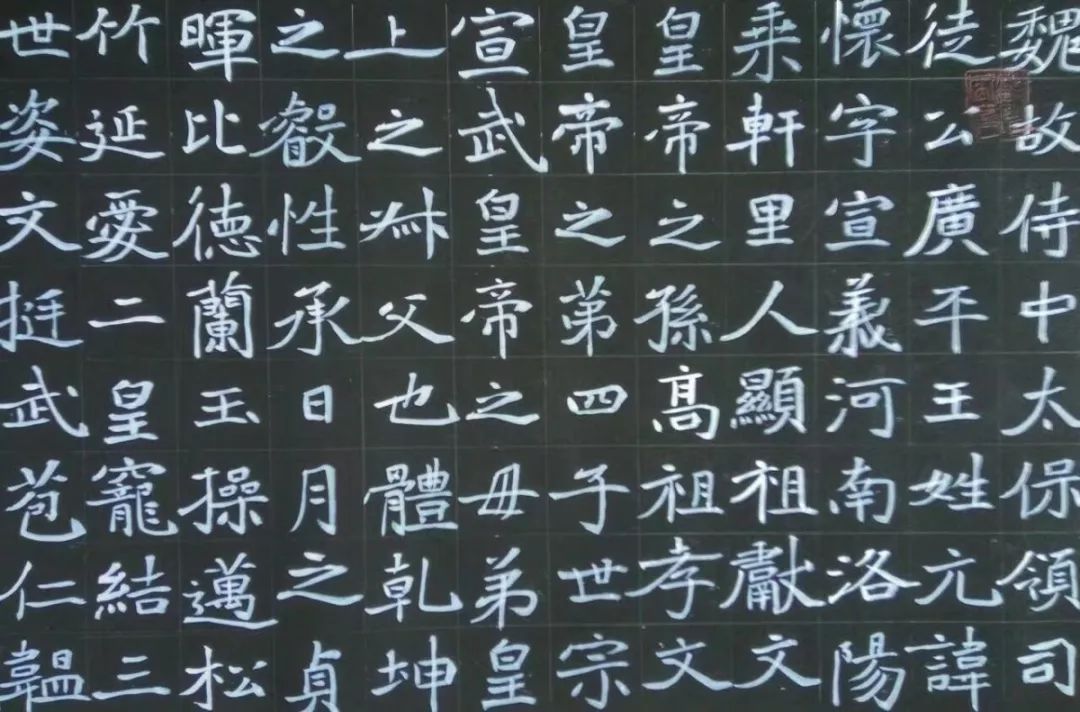 魏故侍中太保領司
徒公廣平王姓元諱
懷字宣義河南洛陽
乘軒里人顯祖獻文
皇帝之孫高祖孝文
皇帝之第四子世宗
宣武皇帝之母弟皇
上之叔父也體乾坤
之叡性承日月之貞
暉比德蘭玉操邁松
竹延愛二皇寵結三
世姿文挺武苞仁韞